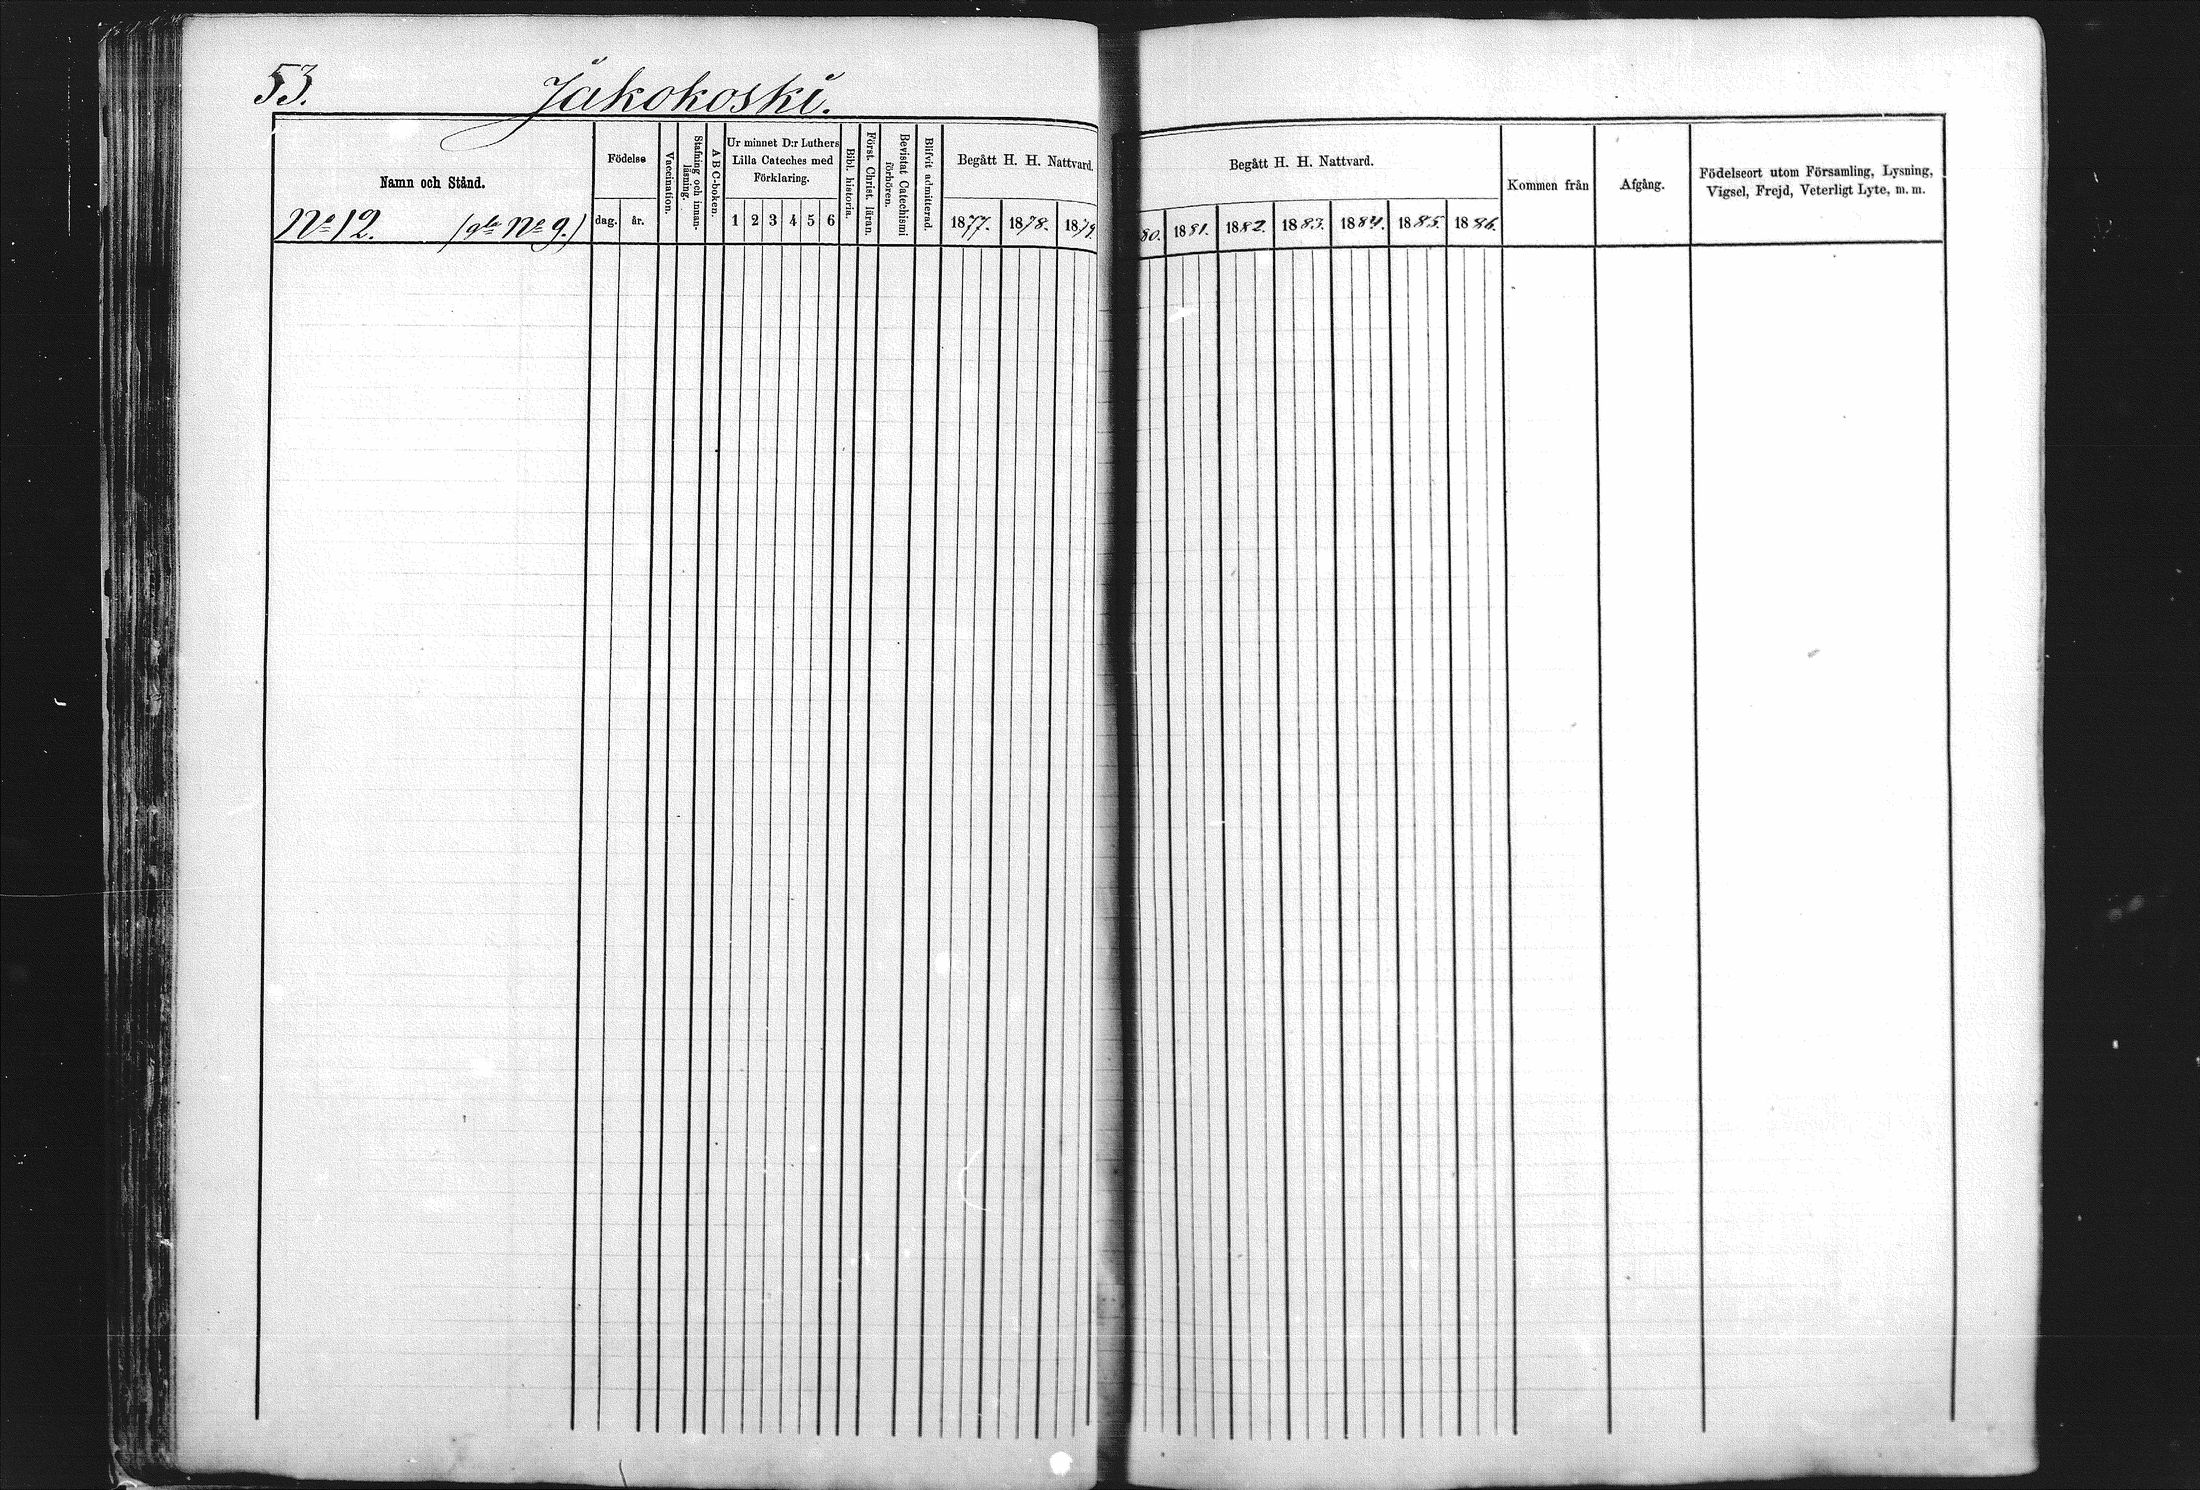 53. Jakokoski.
Namn och Stånd.
No 12. (gla No 9.)
Födelse
dag. år.
Vaccination.
Stafning och innan-
läsning.
A B C-boken.
Ur minnet D:r Luthers
Lilla Cateches med
Förklaring.
1 2 3 4 5 6
Bibl. historia.
Först. Christ. läran.
Bevistat Catechismi
förhören.
Blifvit admitterad.
Begått H. H. Nattvard.
1877. 1878. 1879.
Begått H. H. Nattvard.
80. 1881. 1882. 1883. 1884. 1885. 1886.
Kommen från
Afgång.
Födelseort utom Församling, Lysning,
Vigsel, Frejd, Veterligt Lyte, m. m.